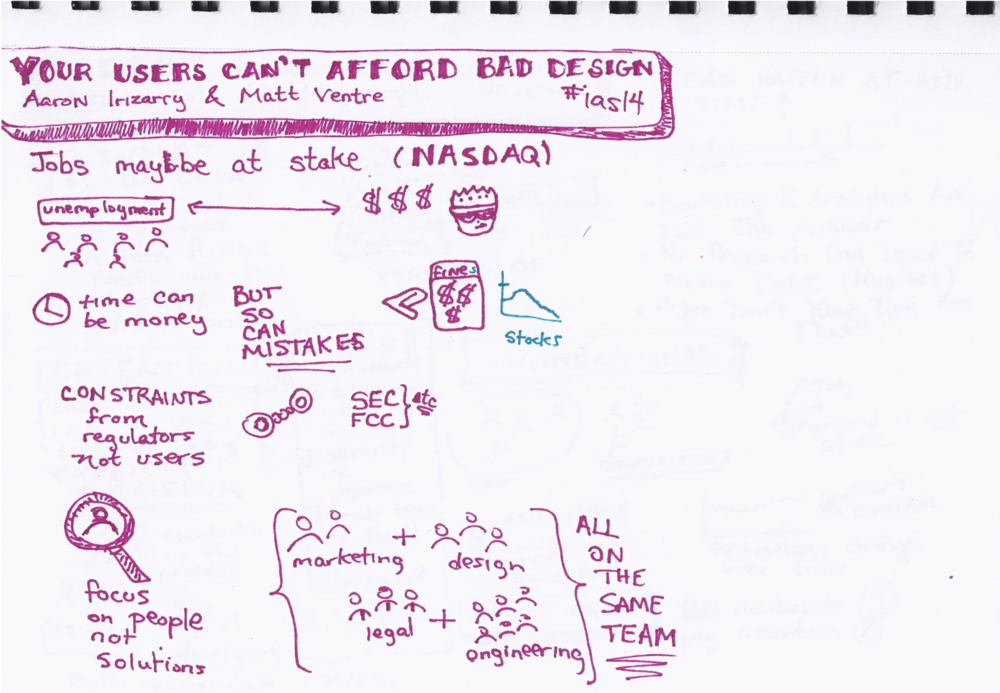 YOUR USERS CAN'T AFFORD BAD DESIGN
Aaron Irizarry & Matt Ventre #ias14
Jobs may be at stake (NASDAQ)
unemployment
$ $ $
time can
be money
BUT
SO
CAN
MISTAKES
FINES
$ $
$
Stocks
CONSTRAINTS
from
regulators
not users
SEC
FCC
etc
focus
on people
not
solutions
marketing + design
legal + engineering
ALL
ON
THE
SAME
TEAM